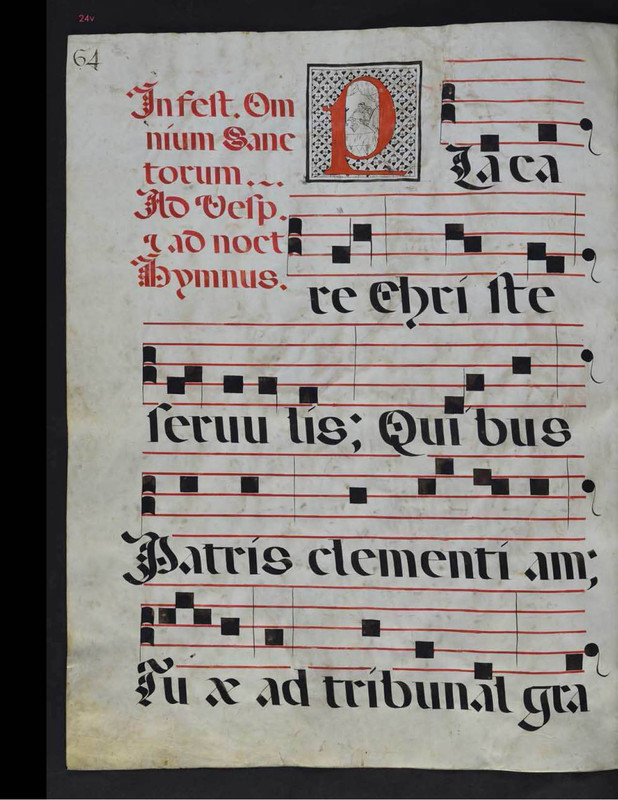 24v
64
In fest. Om
nium Sanc
torum...
Ad Vesp.
⁊ ad noct
Hymnus.
PLaca
re Chri ste
seruu lis; Qui bus
Patris clementi am;
Tu æ ad tribunal gra